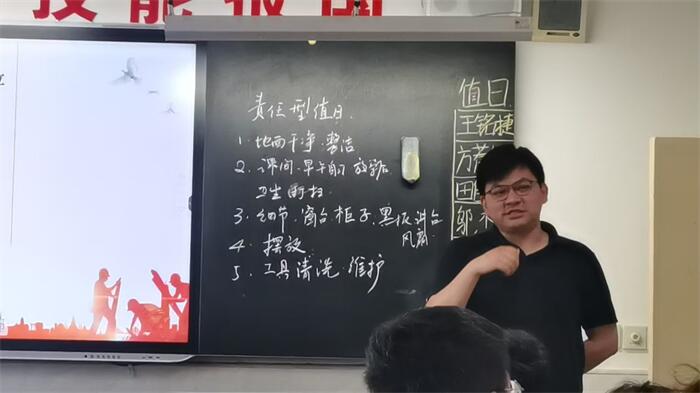 技能报国
责任型值日
1. 地面干净.整洁
2. 课间.早午自习放学后
卫生打扫.
3. 细节.窗台柜子.黑板讲台
风扇
4. 摆放.
5. 工具清洗.维护
值日
王铭捷
方
田
邬